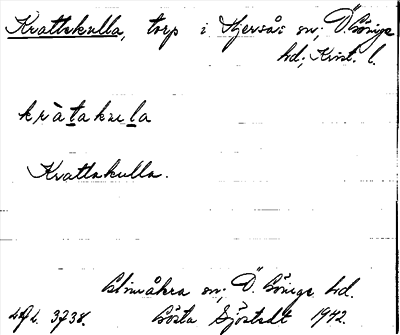 Krattakulla, torp i Hjersås sn; Ö. Göinge
hd; Krist. l.
kràtakula
Krattakulla.
Glimåkra sn, Ö. Göinge hd.
3738. Gösta Sjöstedt 1942.